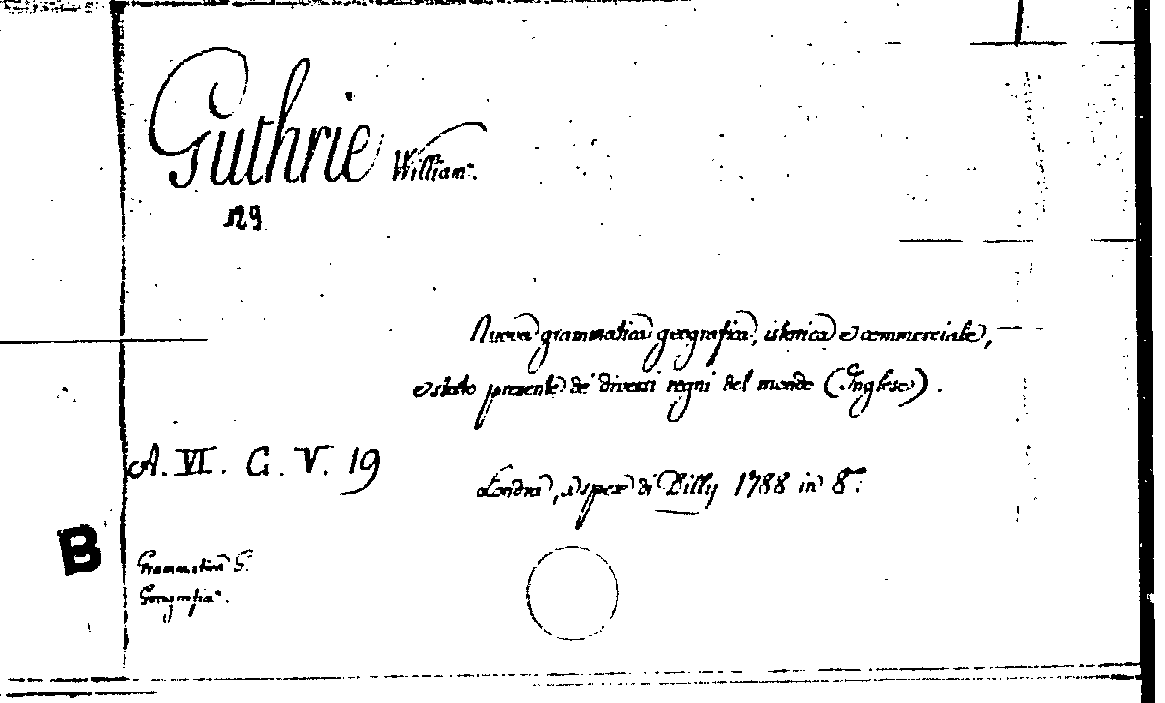 Guthrie William.
129
Nuova grammatica geografica, istorica e commerciale,
e stato presente de' diversi regni del mondo (Inglese).
A. VI. G. V. 19
Londra, a spese di Dilly 1788 in 8°.
B
Grammatica G.
Geografia.